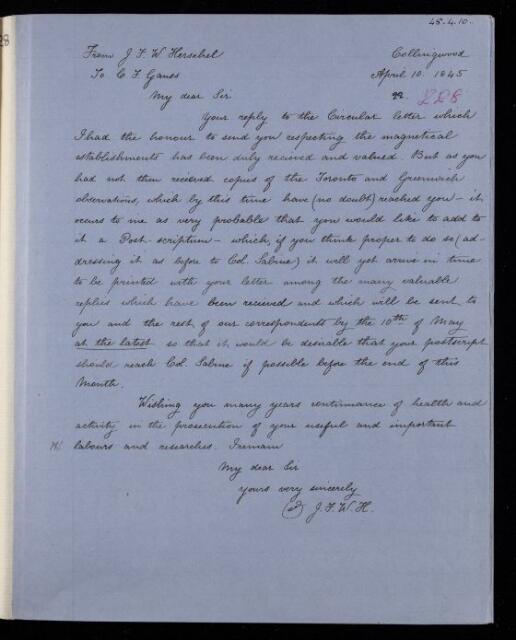 45.4.10.
28
From J. F. W. Herschel Collingwood
To C F Gauss April 10. 1845
My dear Sir 228
Your reply to the Circular letter which
I had the honour to send you respecting the magnetical
establishments has been duly recieved and valued. But as you
had not then recieved copies of the Toronto and Greenwich
observations, which by this time have (no doubt) reached you – it
occurs to me as very probable that you would like to add to
it a Post-scriptum – which, if you think proper to do so (ad-
dressing it as before to Col. Sabine) it will yet arrive in time
to be printed with your letter among the many valuable
replies which have been recieved and which will be sent to
you and the rest of our correspondents by the 10th of May
at the latest so that it would be desirable that your postscript
should reach Col. Sabine if possible before the end of this
Month.
Wishing you many years continuance of health and
activity in the prosecution of your useful and important
labours and researches. I remain
My dear Sir
yours very sincerely
J. F. W. H.